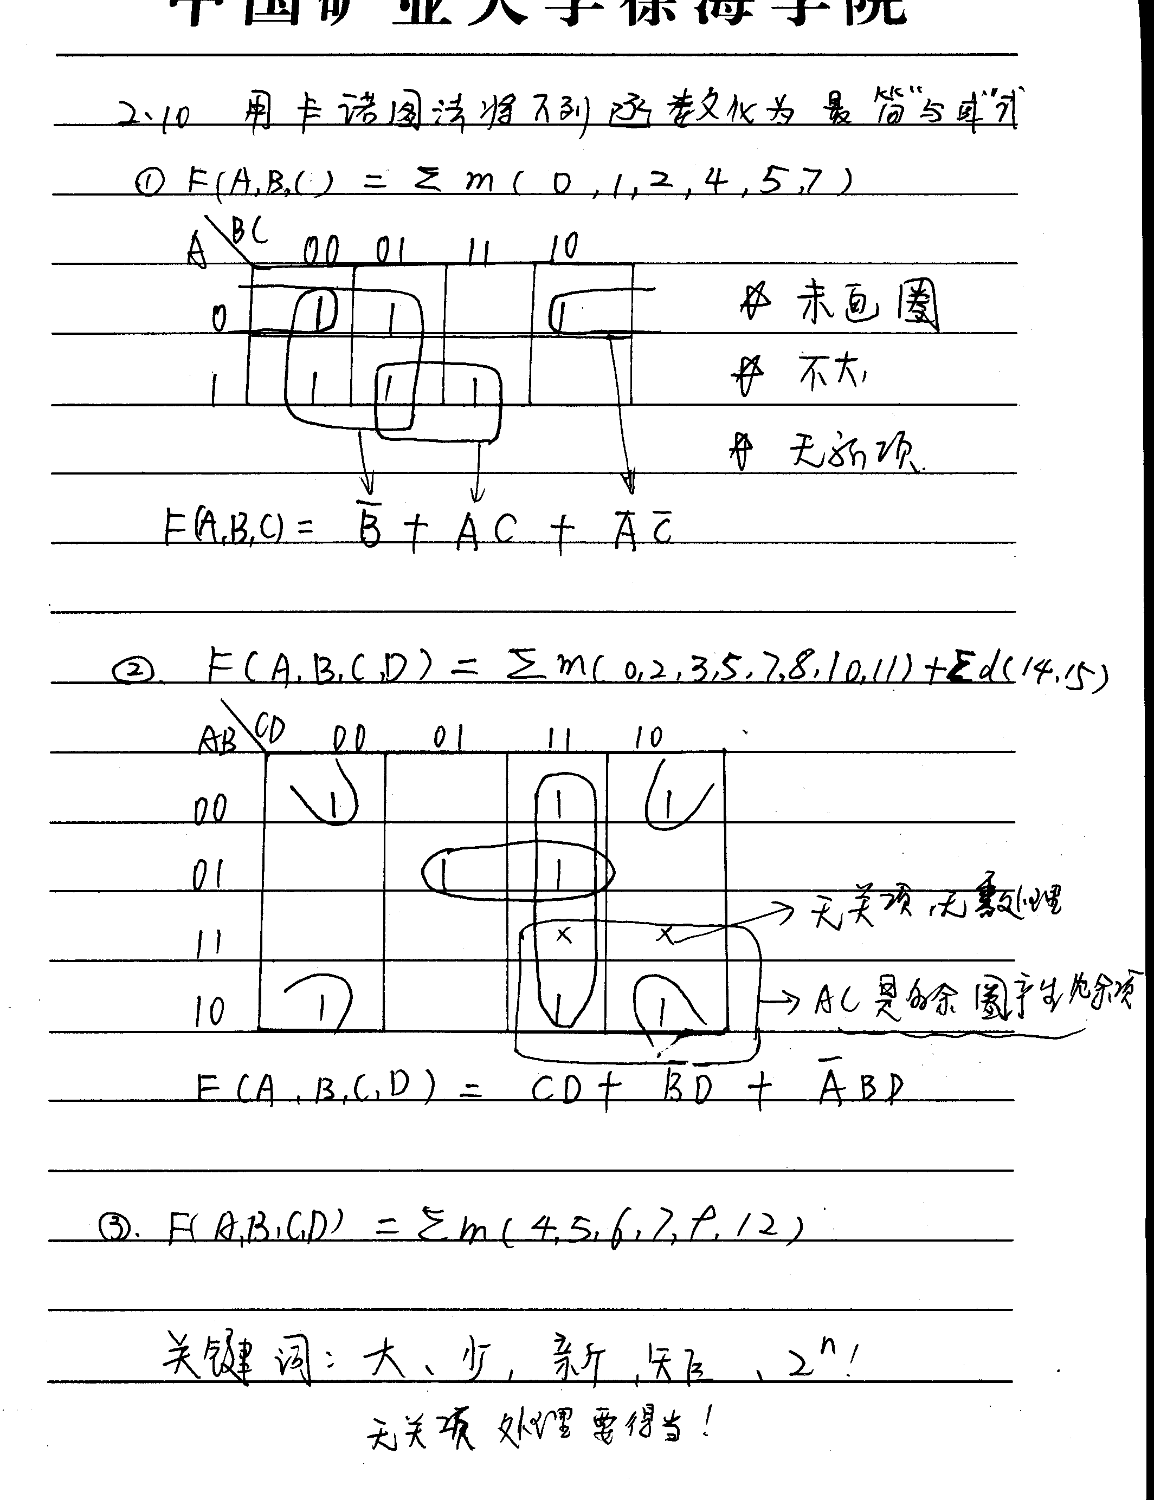 中国矿业大学徐海学院
2.10 用卡诺图法将下列函数化为最简"与或"式
① F(A,B,C) = Σ m( 0,1,2,4,5,7)
A BC 00 01 11 10
0 1 1 1
1 1 1 1
未画圈
不大
无新项
F(A,B,C) = B̅ + AC + A̅ C̅
②. F(A,B,C,D) = Σ m( 0,2,3,5,7,8,10,11)+Σd(14,15)
AB CD 00 01 11 10
00 1 1 1
01 1 1
11 × ×
10 1 1 1
→ 无关项,无需处理
→ AC是多余圈产生冗余项
F(A,B,C,D) = CD+ B̅D̅ + A̅BD
③. F(A,B,C,D) = Σ m( 4,5,6,7,8,12)
关键词: 大、少, 新, 矩、2ⁿ!
无关项处理要得当!